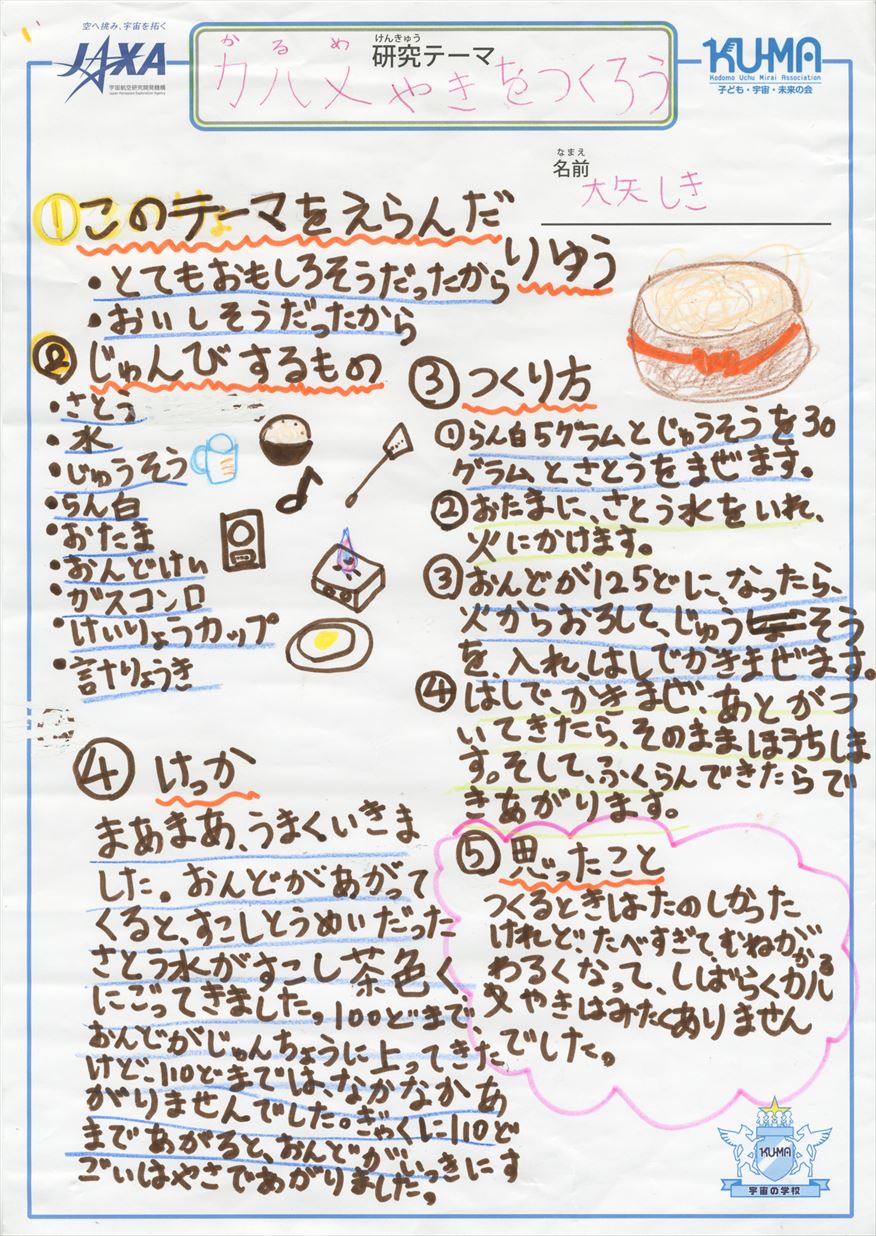 空へ挑み、宇宙を拓く
JAXA
宇宙航空研究開発機構
Japan Aerospace Exploration Agency
けんきゅう
研究テーマ
かるめ
カルメやきをつくろう
KU-MA
Kodomo Uchu Mirai Association
子ども・宇宙・未来の会
なまえ
名前
大矢しき
①このテーマをえらんだ
りゆう
・とてもおもしろそうだったから
・おいしそうだったから
②じゅんびするもの
・さとう
・水
・じゅうそう
・らん白
・おたま
・おんどけい
・ガスコンロ
・けいりょうカップ
・計りょうき
③つくり方
①らん白5グラムとじゅうそうを30
グラム、とさとうをまぜます。
②おたまに、さとう水をいれ、
火にかけます。
③おんどが125どに、なったら、
火からおろして、じゅうそう
を、入れ、はしでかきまぜます。
④はしで、かきまぜ、あとがつ
いてきたら、そのままほうちしま
す。そして、ふくらんできたらで
きあがります。
④けっか
まあまあ、うまくいきま
した。おんどがあがって
くるとすこしとうめいだった
さとう水がすこし茶色く
にごってきました。100どまで
おんどがじゅんちょうに上ってきた
けど、110どまでは、なかなかあ
がりませんでした。ぎゃくに110ど
まであがると、おんどがいっきにす
ごいはやさであがりました。
⑤思ったこと
つくるときはたのしかった
けれど、たべすぎて、むねが
わるくなって、しばらくカル
メやきはみたくありません
でした。
KU-MA
宇宙の学校